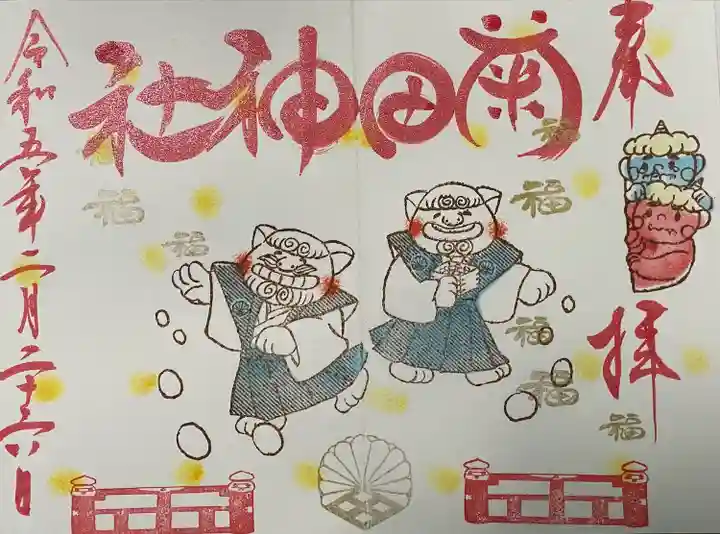 奉拝
菊田神社
福
福
福
福
福
福
福
福
令和五年二月二十六日